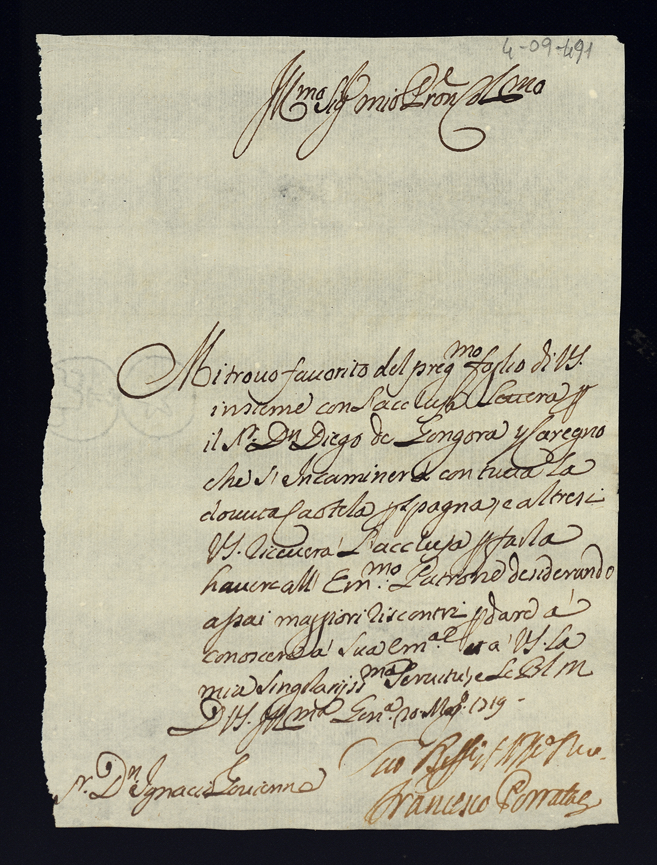 4-09-491
Ill.mo Sig.r mio Pron Col.mo
Mi trouo fauorito del preg.mo foglio di VS.
insieme con l'acclusa Lettera p
il Sr. Dn Diego de Gongora y
che s'Incaminerà con tutta la
douuta Cautela p Spagna, e altresi
VS. riceuerà l'acclusa p farla
hauere all' Em.mo Patrone desiderando
assai maggiori riscontri p dare à
conoscere à Sua Em. et à VS. la
mia Singulariss.ma Seruitù, e Le B l m
D VS. Ill.ma Gen.a 20 Mag. 1719
Sr. Dn Ignacio
Suo
Francesco Porrata